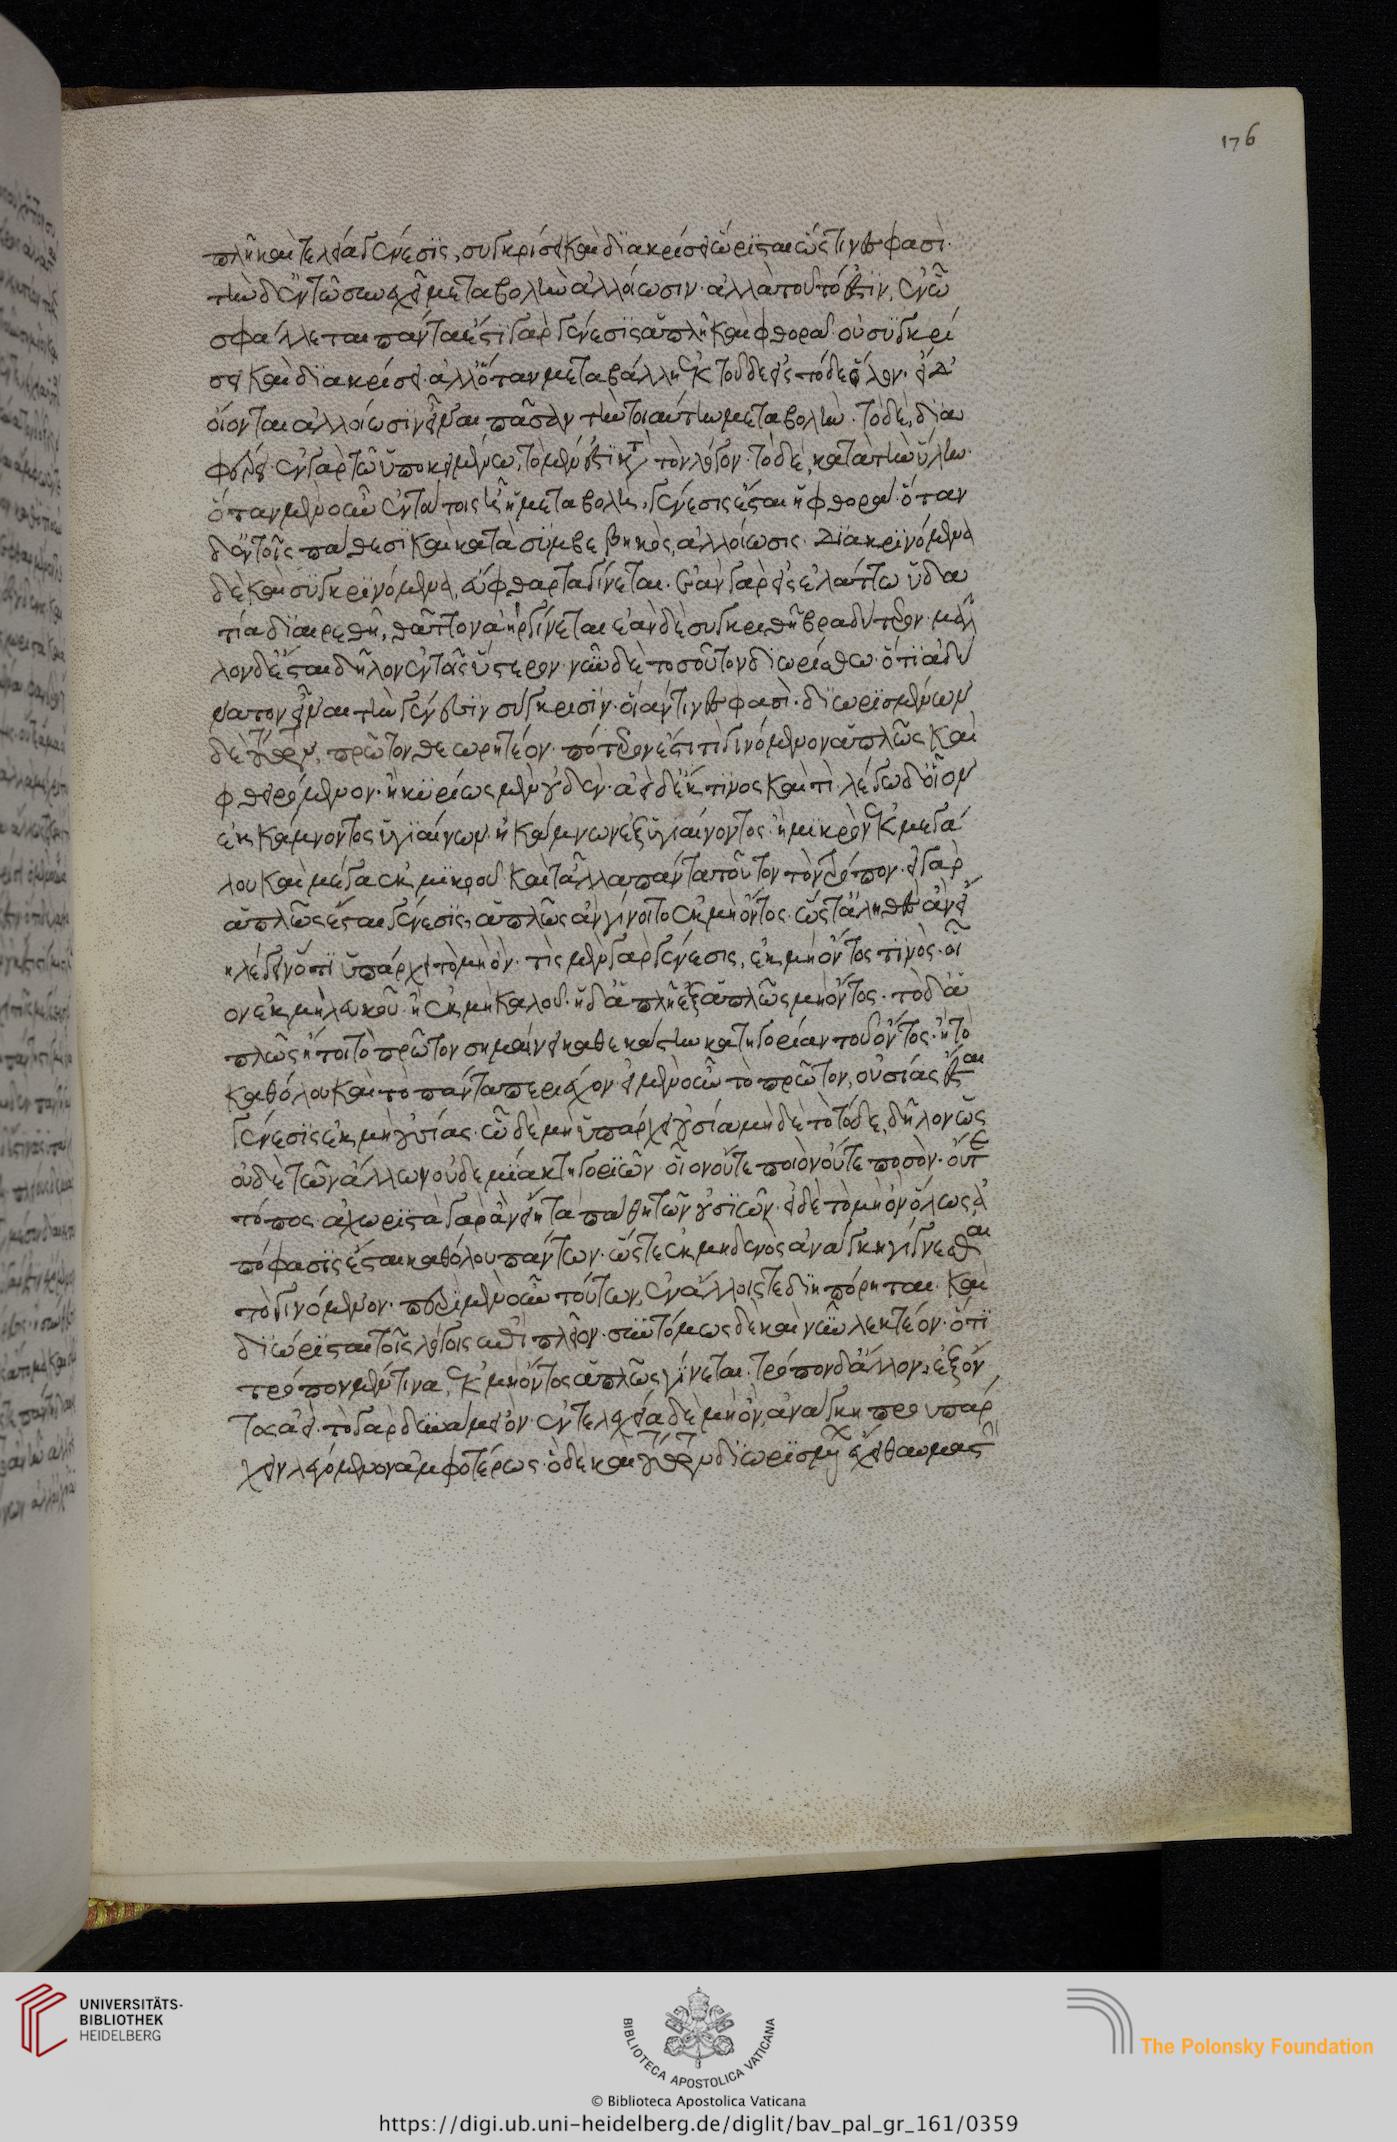 πλῆ καὶ τελεία γένεσις, συγκρίσει καὶ διακρίσει ὥρισται ὥς τινές φασὶ·
τὴν δ' ἐν τῶ συνεχεῖ μεταβολὴν ἀλλοίωσιν· ἀλλὰ τοῦτό ἐστιν, ἐν ὧ
σφάλλεται πάντα· ἔστι γὰρ γένεσις ἁπλῆ καὶ φθορά· οὐ συγκρί
σει καὶ διακρίσει· ἀλλ' ὅταν μεταβάλλη ἐκ τοῦδε εἰς τόδε ὅλον· οἱ δ'
οἴονται ἀλλοίωσιν εἶναι πᾶσαν τὴν τοιαύτην μεταβολὴν· τὸ δὲ, δια
φέρει· ἐν γὰρ τῶ ὑποκειμένω, τὸ μέν ἐστι κατὰ τὸν λόγον· τὸ δὲ, κατὰ τὴν ὕλην·
ὅταν μὲν οὖν ἐν τούτοις ἦ ἡ μεταβολὴ, γένεσις ἔσται ἢ φθορά· ὅταν
δ' ἐν τοῖς πάθεσι καὶ κατὰ συμβεβηκὸς, ἀλλοίωσις· Διακρινόμενα
δὲ καὶ συγκρινόμενα, εὔφθαρτα γίνεται· ἐὰν γὰρ εἰς ἐλάττω ὑδά
τια διαιρεθῆ, θᾶττον ἀὴρ γίνεται· ἐὰν δὲ συγκριθῆ βραδύτερον· μᾶλ
λον δ' ἔσται δῆλον ἐν τοῖς ὕστερον· νῦν δὲ τοσοῦτον διωρίσθω· ὅτι ἀδύ
νατον εἶναι τὴν γένεσιν σύγκρισιν· οἵαν τινές φασὶ· διωρισμένων
δὲ τούτων, πρῶτον θεωρητέον· πότερόν ἐστί τι γινόμενον ἁπλῶς καὶ
φθειρόμενον· ἢ κυρίως μὲν οὐδὲν· ἀεὶ δ' ἔκ τινος καὶ τὶ· λέγω δ' οἷον
ἐκ κάμνοντος ὑγιαίνων· ἢ κάμνων ἐξ ὑγιαίνοντος· ἢ μικρὸν ἐκ μεγά
λου καὶ μέγα ἐκ μικροῦ· καὶ τἄλλα πάντα τοῦτον τὸν τρόπον· εἰ γὰρ
ἁπλῶς ἔσται γένεσις, ἁπλῶς ἂν γίνοιτο ἐκ μὴ ὄντος· ὥστ' ἀληθὲς ἂν εἴ
η λέγειν ὅτι ὑπάρχει τὸ μὴ ὄν· τὶς μὲν γὰρ γένεσις, ἐκ μὴ ὄντος τινὸς· οἷ
ον ἐκ μὴ λευκοῦ· ἢ ἐκ μὴ καλοῦ· ἡ δ' ἁπλῆ ἐξ ἁπλῶς μὴ ὄντος· τὸ δ' ἁ
πλῶς ἤτοι τὸ πρῶτον σημαίνει καθ' ἑκάστην κατηγορίαν τοῦ ὄντος· ἢ τὸ
καθόλου καὶ τὸ πάντα περιέχον· εἰ μὲν οὖν τὸ πρῶτον, οὐσίας ἔσται
γένεσις ἐκ μὴ οὐσίας· ὧ δὲ μὴ ὑπάρχει οὐσία μὴδὲ τὸ τόδε, δῆλον ὡς
οὐδὲ τῶν ἄλλων οὐδεμία κατηγοριῶν· οἷον οὔτε ποιὸν οὔτε ποσὸν· οὔτε
τόπος· ἀχωριστὰ γὰρ ἂν εἴη τὰ πάθη τῶν οὐσιῶν· εἰ δὲ τὸ μὴ ὂν ὅλως, ἀ
πόφασις ἔσται καθόλου πάντων· ὥστε ἐκ μηδενὸς ἀνάγκη γίγνεσθαι
τὸ γινόμενον· περὶ μὲν οὖν τούτων, ἐν ἄλλοις τε διηπόρηται· καὶ
διώρισται τοῖς λόγοις ἐπὶ πλεῖον· συντόμως δὲ καὶ νῦν λεκτέον· ὅτι
τρόπον μέν τινα, ἐκ μὴ ὄντος ἁπλῶς γίνεται· τρόπον δ' ἄλλον, ἐξ ὄν
τος ἀεί· τὸ γὰρ δυνάμει ὂν· ἐντελεχεία δὲ μὴ ὂν, ἀνάγκη προϋπάρ
χειν λεγόμενον ἀμφοτέρως· ὃ δὲ καὶ τούτων διωρισμένων ἔχει θαυμαστὴν
176
UNIVERSITÄTS-
BIBLIOTHEK
HEIDELBERG
BIBLIOTECA APOSTOLICA VATICANA
The Polonsky Foundation
© Biblioteca Apostolica Vaticana
https://digi.ub.uni-heidelberg.de/diglit/bav_pal_gr_161/0359